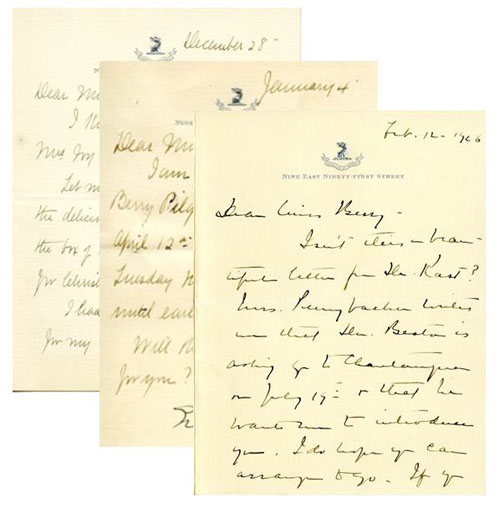 December 28
Dear
I
Mrs
Let m
the delici
the box of
for Christ
I had
for my
January 4
Nine
Dear M
I am
Berry Pilg
April 12th
Tuesday
until earl
Will
for you?
Feb. 12 - 1926
NINE EAST NINETY-FIRST STREET
Dear Miss Berry -
Isn't this a beau-
tiful letter from Dr. Kast?
Mrs. Pennybacker writes
me that Dr. Bestor is
asking you to Chautauqua
on July 19th & that he
wants me to introduce
you. I do hope you can
arrange to go. If you